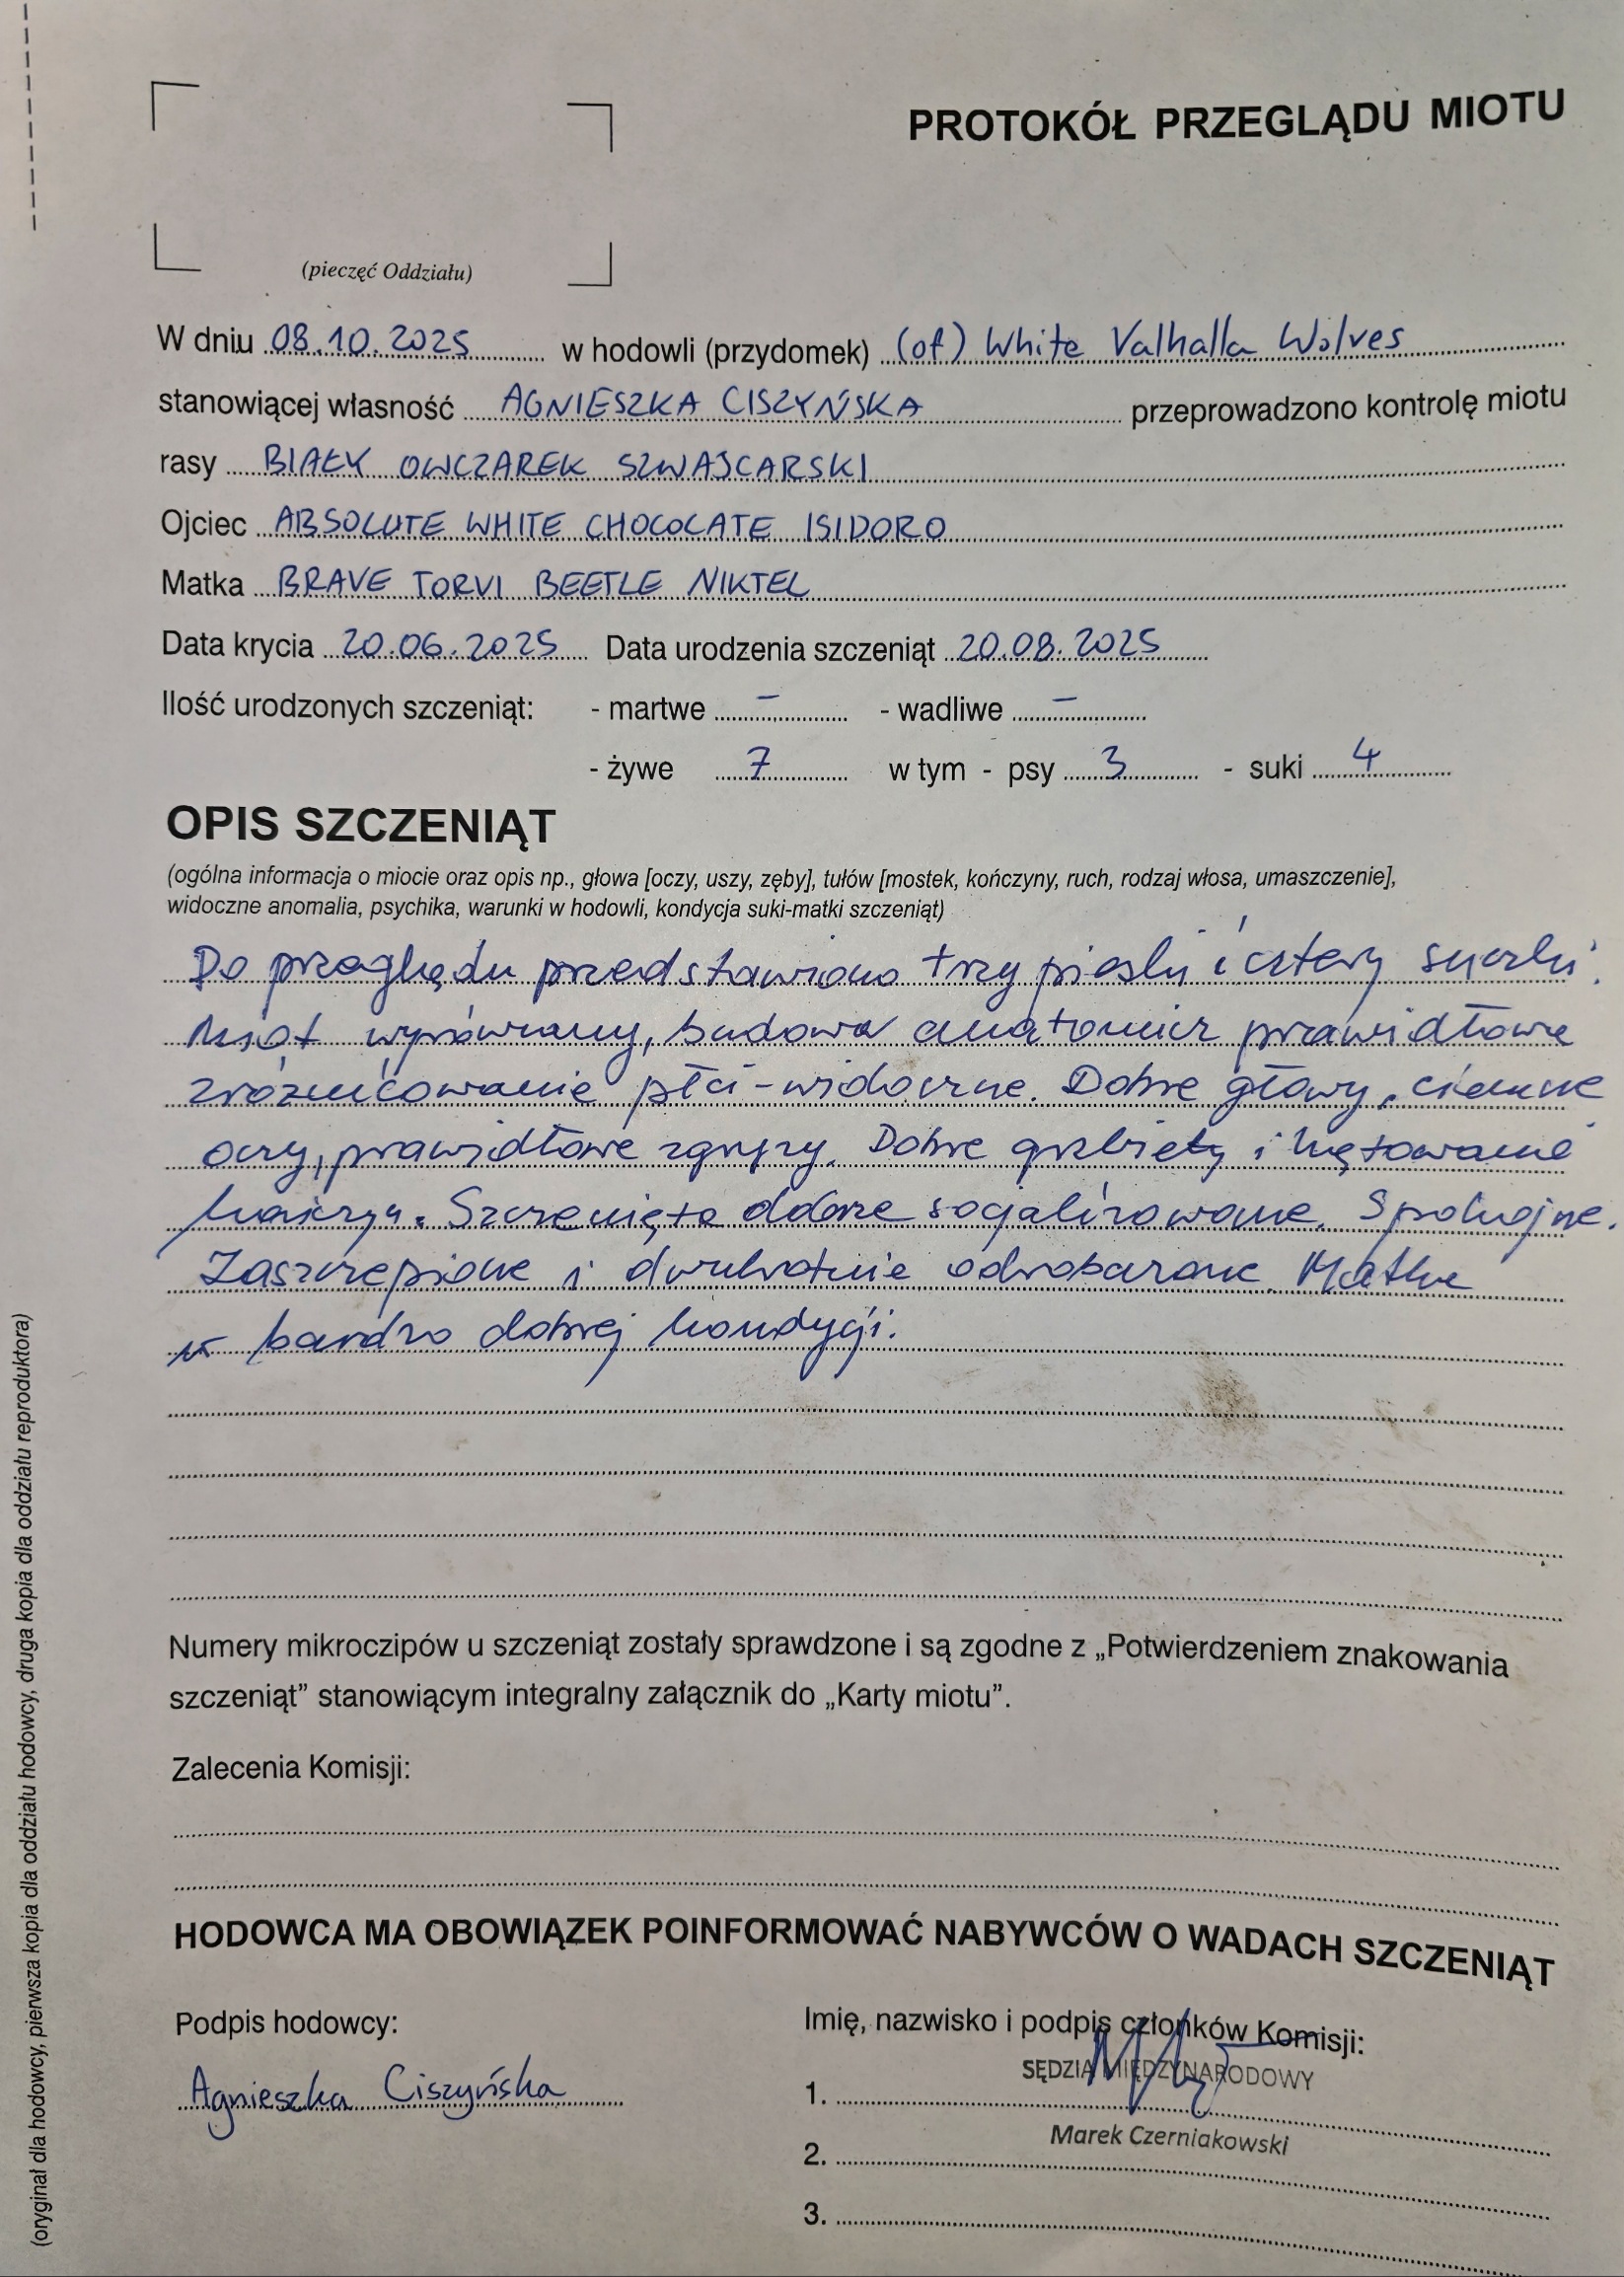 PROTOKÓŁ PRZEGLĄDU MIOTU
(pieczęć Oddziału)
W dniu 08.10.2025 w hodowli (przydomek) (of) White Valhalla Wolves
stanowiącej własność AGNIESZKA CISZYŃSKA przeprowadzono kontrolę miotu
rasy BIAŁY OWCZAREK SZWAJCARSKI
Ojciec ABSOLUTE WHITE CHOCOLATE ISIDORO
Matka BRAVE TORVI BEETLE NIKTEL
Data krycia 20.06.2025 Data urodzenia szczeniąt 20.08.2025
Ilość urodzonych szczeniąt: - martwe – - wadliwe –
- żywe 7 w tym - psy 3 - suki 4
OPIS SZCZENIĄT
(ogólna informacja o miocie oraz opis np., głowa [oczy, uszy, zęby], tułów [mostek, kończyny, ruch, rodzaj włosa, umaszczenie],
widoczne anomalia, psychika, warunki w hodowli, kondycja suki-matki szczeniąt)
Do przeglądu przedstawiono trzy pieski i cztery suczki.
Miot wyrównany, budowa anatomicz prawidłowe
zróżnicowanie płci - widoczne. Dobre głowy, ciemne
oczy, prawidłowe zgryzy. Dobre grzbiety i kątowanie
kończyn. Szczenięta dobrze socjalizowane. Spokojne.
Zaszczepione i dwukrotnie odrobaczone. Matka
w bardzo dobrej kondycji.
Numery mikroczipów u szczeniąt zostały sprawdzone i są zgodne z „Potwierdzeniem znakowania
szczeniąt” stanowiącym integralny załącznik do „Karty miotu”.
Zalecenia Komisji:
HODOWCA MA OBOWIĄZEK POINFORMOWAĆ NABYWCÓW O WADACH SZCZENIĄT
Podpis hodowcy:
Agnieszka Ciszyńska
Imię, nazwisko i podpis członków Komisji:
SĘDZIA MIĘDZYNARODOWY
1.
Marek Czerniakowski
2.
3.
(oryginał dla hodowcy, pierwsza kopia dla oddziału hodowcy, druga kopia dla oddziału reproduktora)